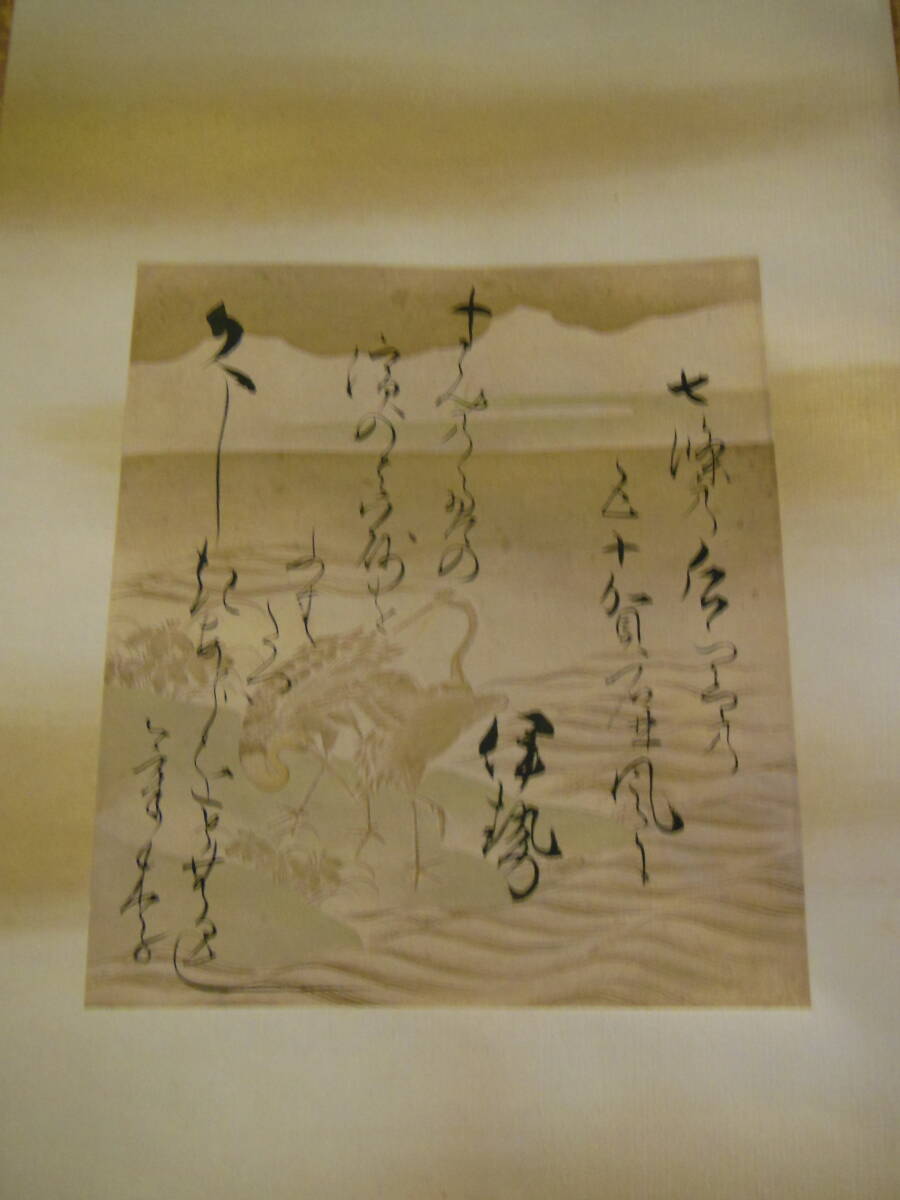 七條の后の宮の
五十賀の屏風に
伊勢
すみの江の
濱のまさごを
ふむ
たつは
久しきあとをとむる